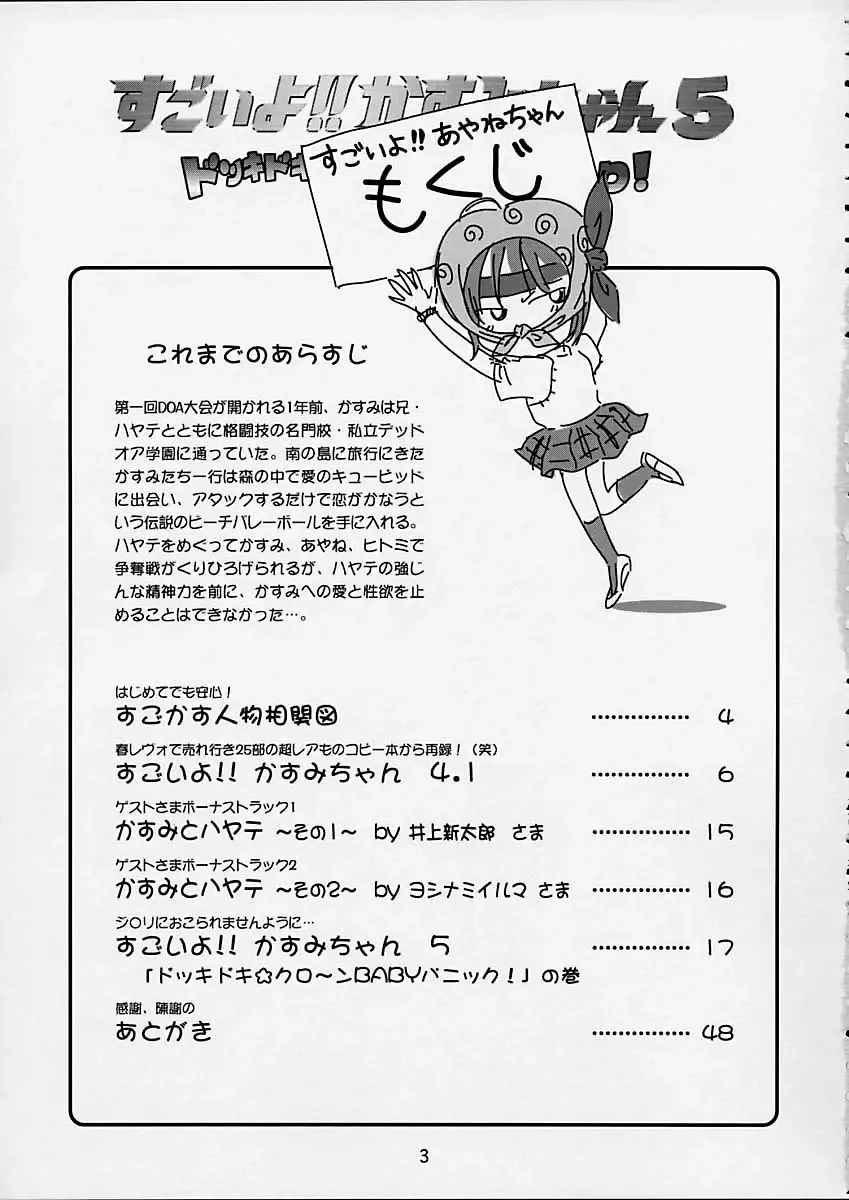 すごいよ!! かすみちゃん5
ドッキドキ
!
すごいよ!! あやねちゃん
もくじ
これまでのあらすじ
第一回DOA大会が開かれる1年前、かすみは兄・
ハヤテとともに格闘技の名門校・私立デッド
オア学園に通っていた。南の島に旅行にきた
かすみたち一行は森の中で愛のキューピッド
に出会い、アタックするだけで恋がかなうと
いう伝説のビーチバレーボールを手に入れる。
ハヤテをめぐってかすみ、あやね、ヒトミで
争奪戦がくりひろげられるが、ハヤテの強じ
んな精神力を前に、かすみへの愛と性欲を止
めることはできなかった…。
はじめてでも安心!
すごかす人物相関図 ……………… 4
春レヴォで売れ行き25部の超レアものコピー本から再録!(笑)
すごいよ!! かすみちゃん 4.1 ……………… 6
ゲストさまボーナストラック1
かすみとハヤテ ~その1~ by 井上新太郎 さま ……………… 15
ゲストさまボーナストラック2
かすみとハヤテ ~その2~ by ヨシナミイルマ さま ……………… 16
ジ○リにおこられませんように…
すごいよ!! かすみちゃん 5 ……………… 17
「ドッキドキ☆クロ~ンBABYパニック!」の巻
感謝、陳謝の
あとがき ……………… 48
3